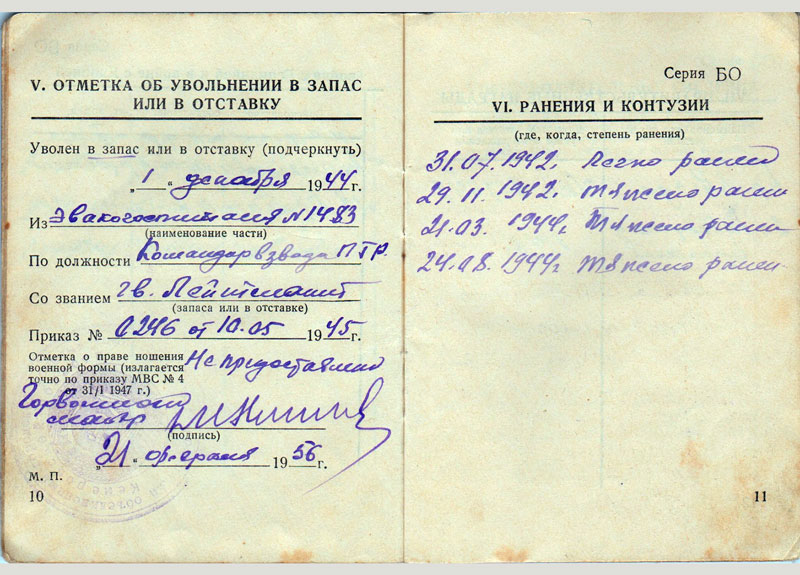 V. ОТМЕТКА ОБ УВОЛЬНЕНИИ В ЗАПАС
ИЛИ В ОТСТАВКУ
Уволен в запас или в отставку (подчеркнуть)
„1“ декабря 1944 г.
Из Эвакогоспиталя №1483
(наименование части)
По должности Командир взвода ПТР.
Со званием гв. Лейтенант
(запаса или в отставке)
Приказ № 0246 от 10.05 1945 г.
Отметка о праве ношения
военной формы (излагается
точно по приказу МВС № 4
от 31/I 1947 г.)
Не предоставлено
Горвоенком
(подпись)
„21“ февраля 1956 г.
М. П.
10
Серия БО
VI. РАНЕНИЯ И КОНТУЗИИ
(где, когда, степень ранения)
31.07.1942. Легко ранен
29.11.1942. тяжело ранен
21.03.1944г. тяжело ранен
24.08.1944г тяжело ранен
11